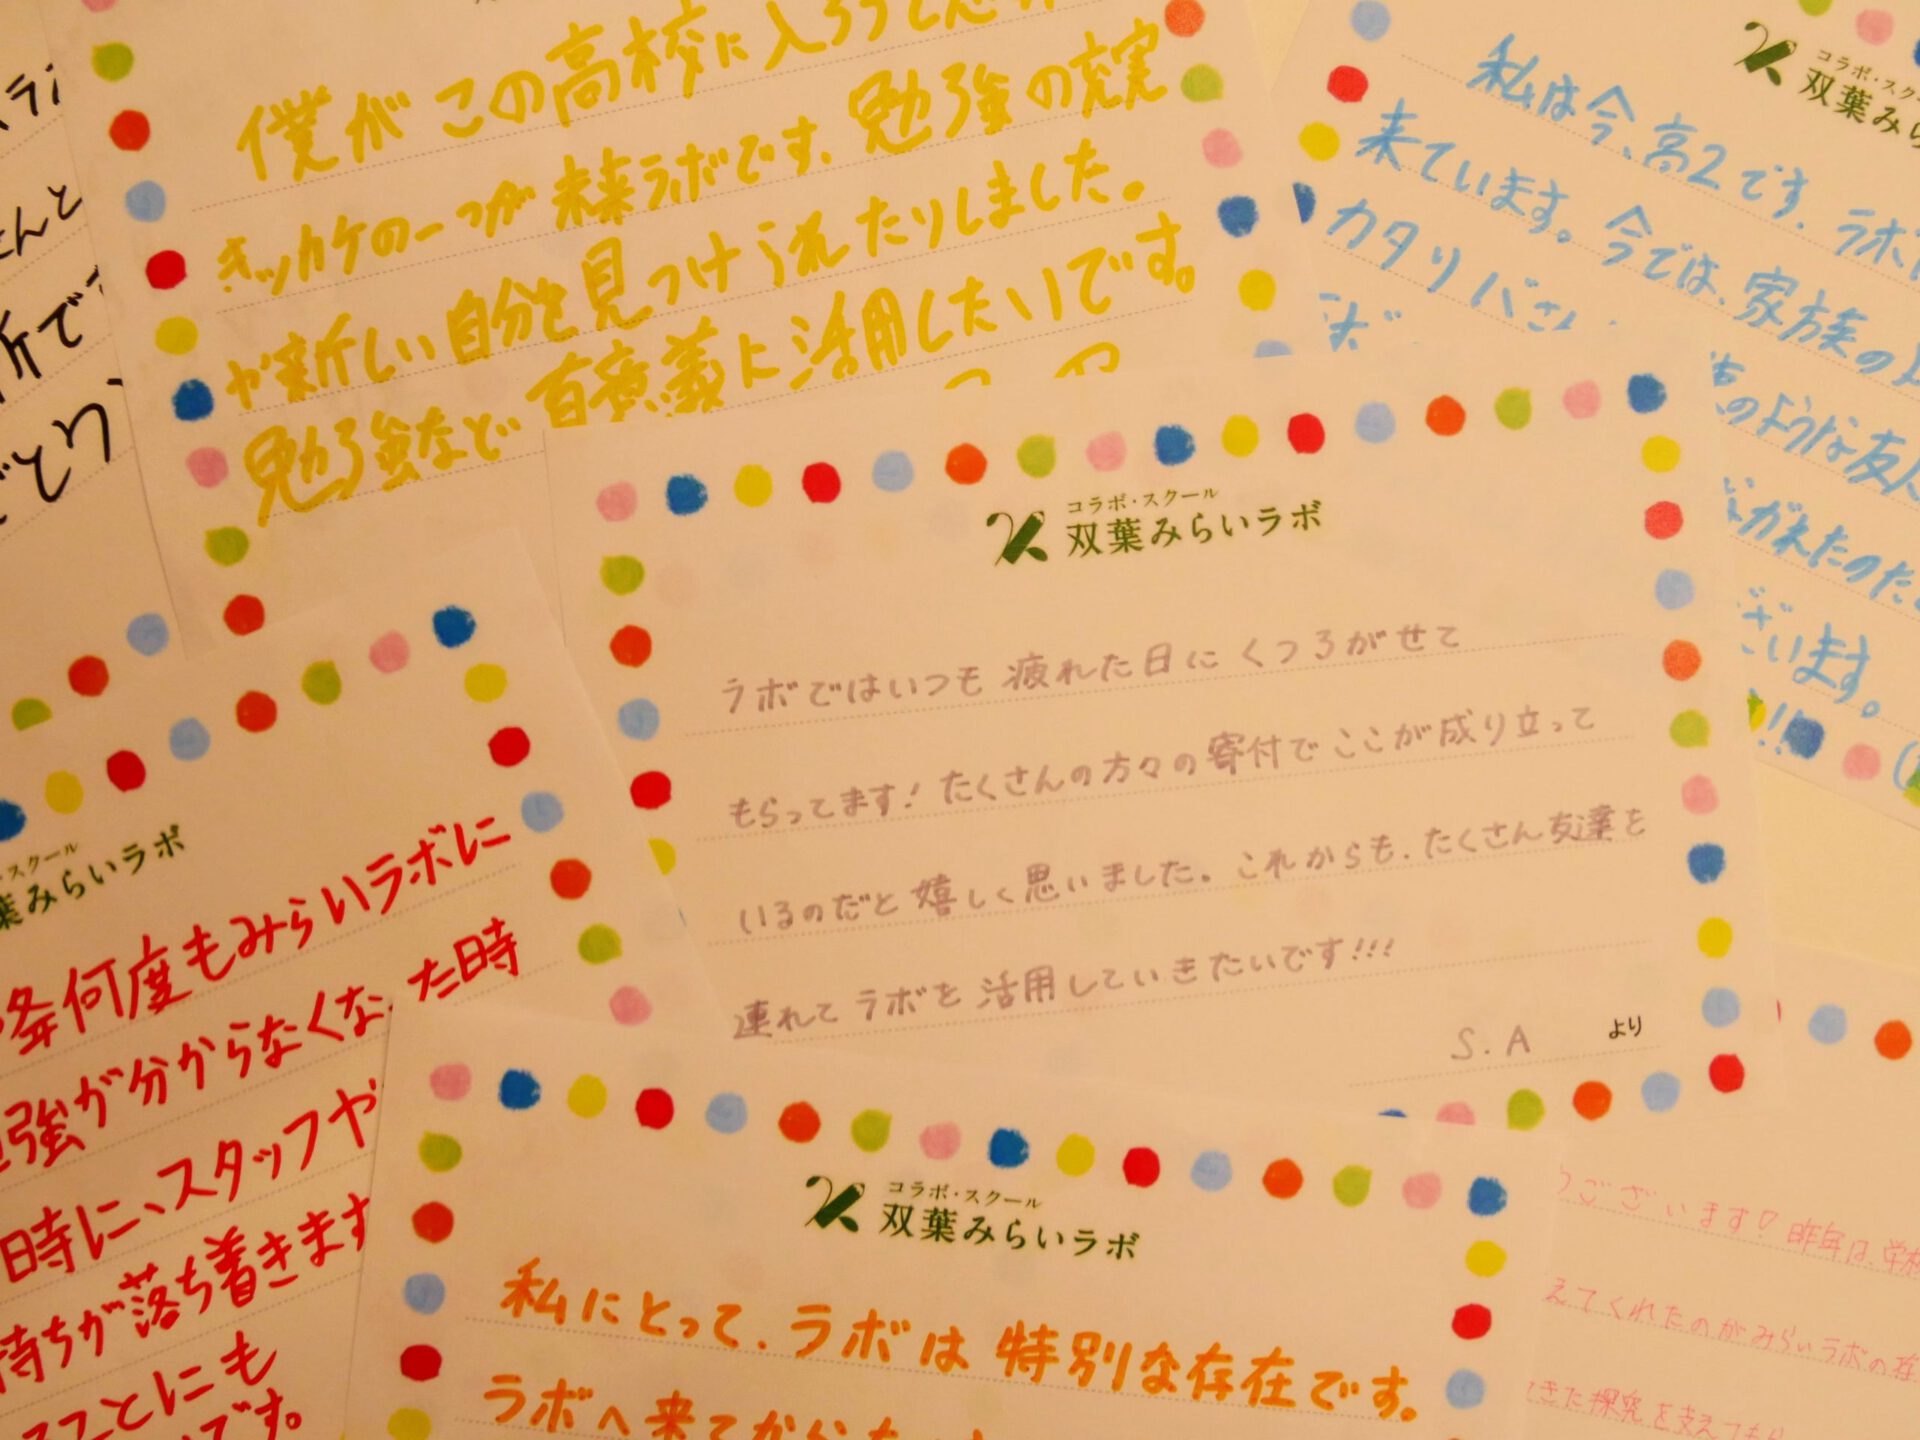 僕がこの高校に入ろうと思
キッカケの一つが未来ラボです、勉強の充実
や新しい自分を見つけられたりしました。
勉強など有意義に活用したいです。
コラボ・スク
双葉みら
私は今、高2です。ラボ
来ています。今では、家族の
カタリバさ
のような友人
がれたのた
ざいます。
!!
コラボ・スクール
双葉みらいラボ
ラボではいつも疲れた日にくつろがせて
もらってます!たくさんの方々の寄付でここが成り立って
いるのだと嬉しく思いました。これからも、たくさん友達を
連れてラボを活用していきたいです!!!
S.A より
スクール
葉みらいラボ
何度もみらいラボに
強が分からなくなった時
時に、スタッフや
持ちが落ち着きます
ことにも
です。
コラボ・スクール
双葉みらいラボ
私にとって、ラボは特別な存在です。
ラボへ来てから
ございます!昨年は、学校
えてくれたのがみらいラボの
きた探究を支えても